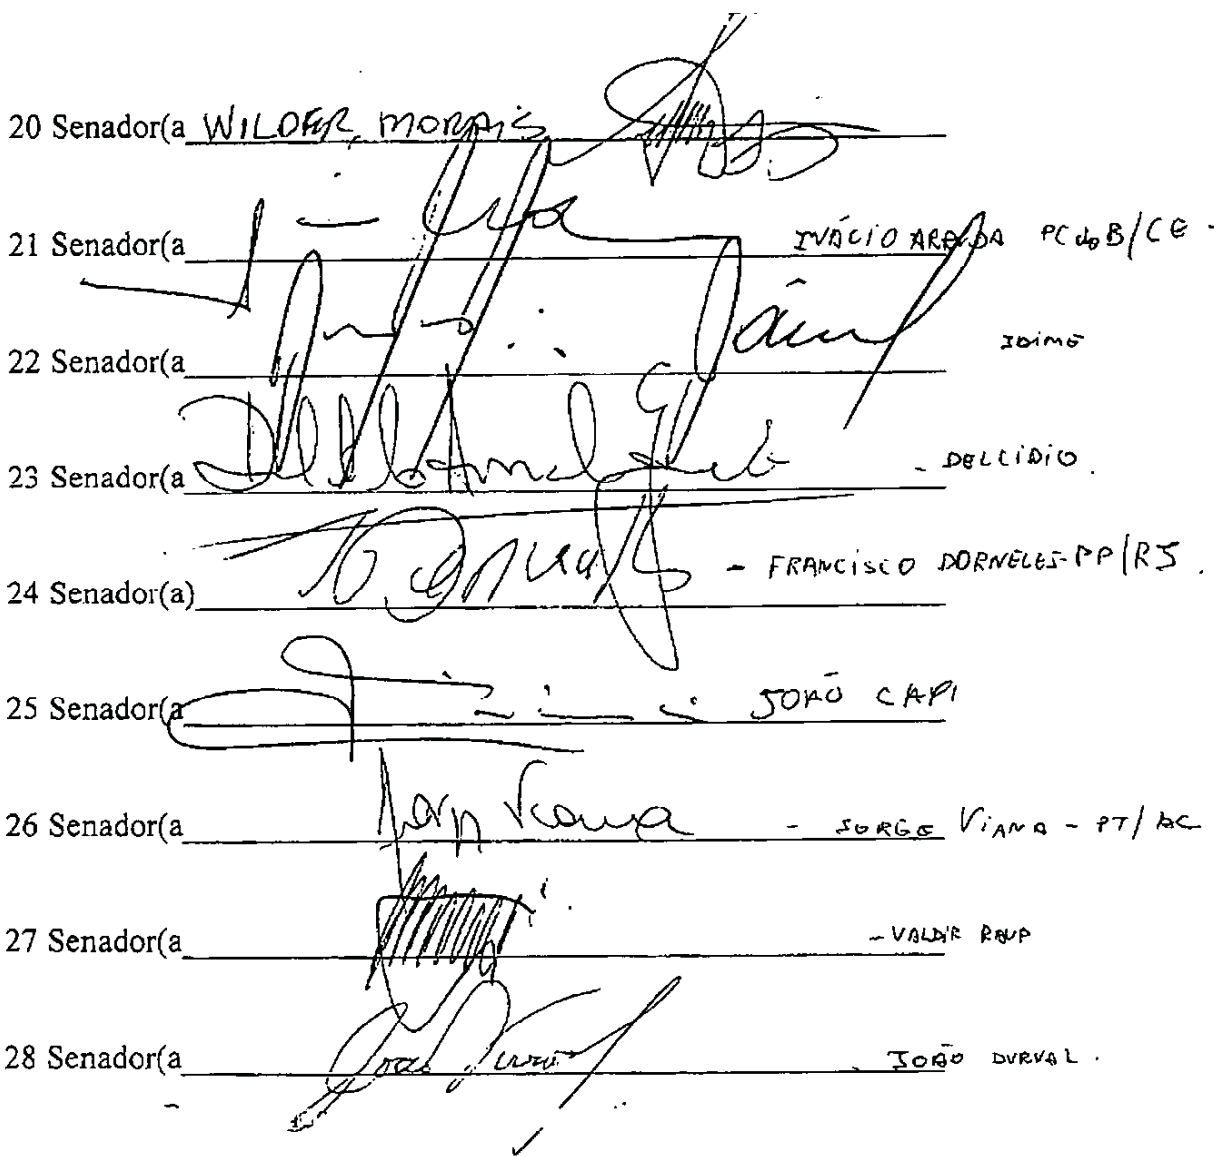 20 Senador(a WILDER MORAIS
21 Senador(a INÁCIO ARRUDA PCdoB/CE
22 Senador(a JAIME
23 Senador(a - DELCÍDIO.
24 Senador(a) - FRANCISCO DORNELES-PP/RJ.
25 Senador(a JOÃO CAPI
26 Senador(a Jorge Viana - JORGE VIANA - PT/AC
27 Senador(a - VALDIR RAUP
28 Senador(a João Durval JOÃO DURVAL.